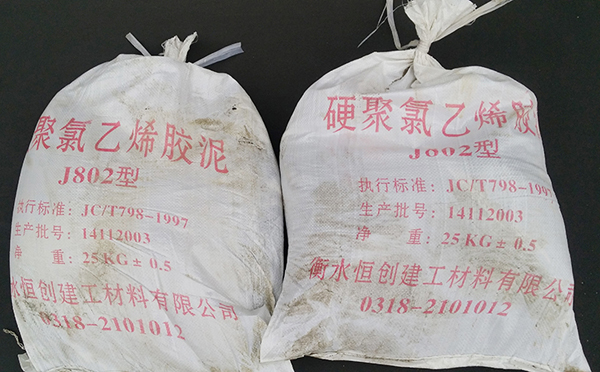 聚氯乙烯胶泥
J802型
执行标准：JC/T798-1997
生产批号：14112003
净 重：25KG±0.5
水恒创建工材料有限公司
0318-2101012
硬聚氯乙烯胶
J802型
执行标准：JC/T798-1997
生产批号：14112003
净 重：25KG±0.5
衡水恒创建工材料有限公司
0318-2101012